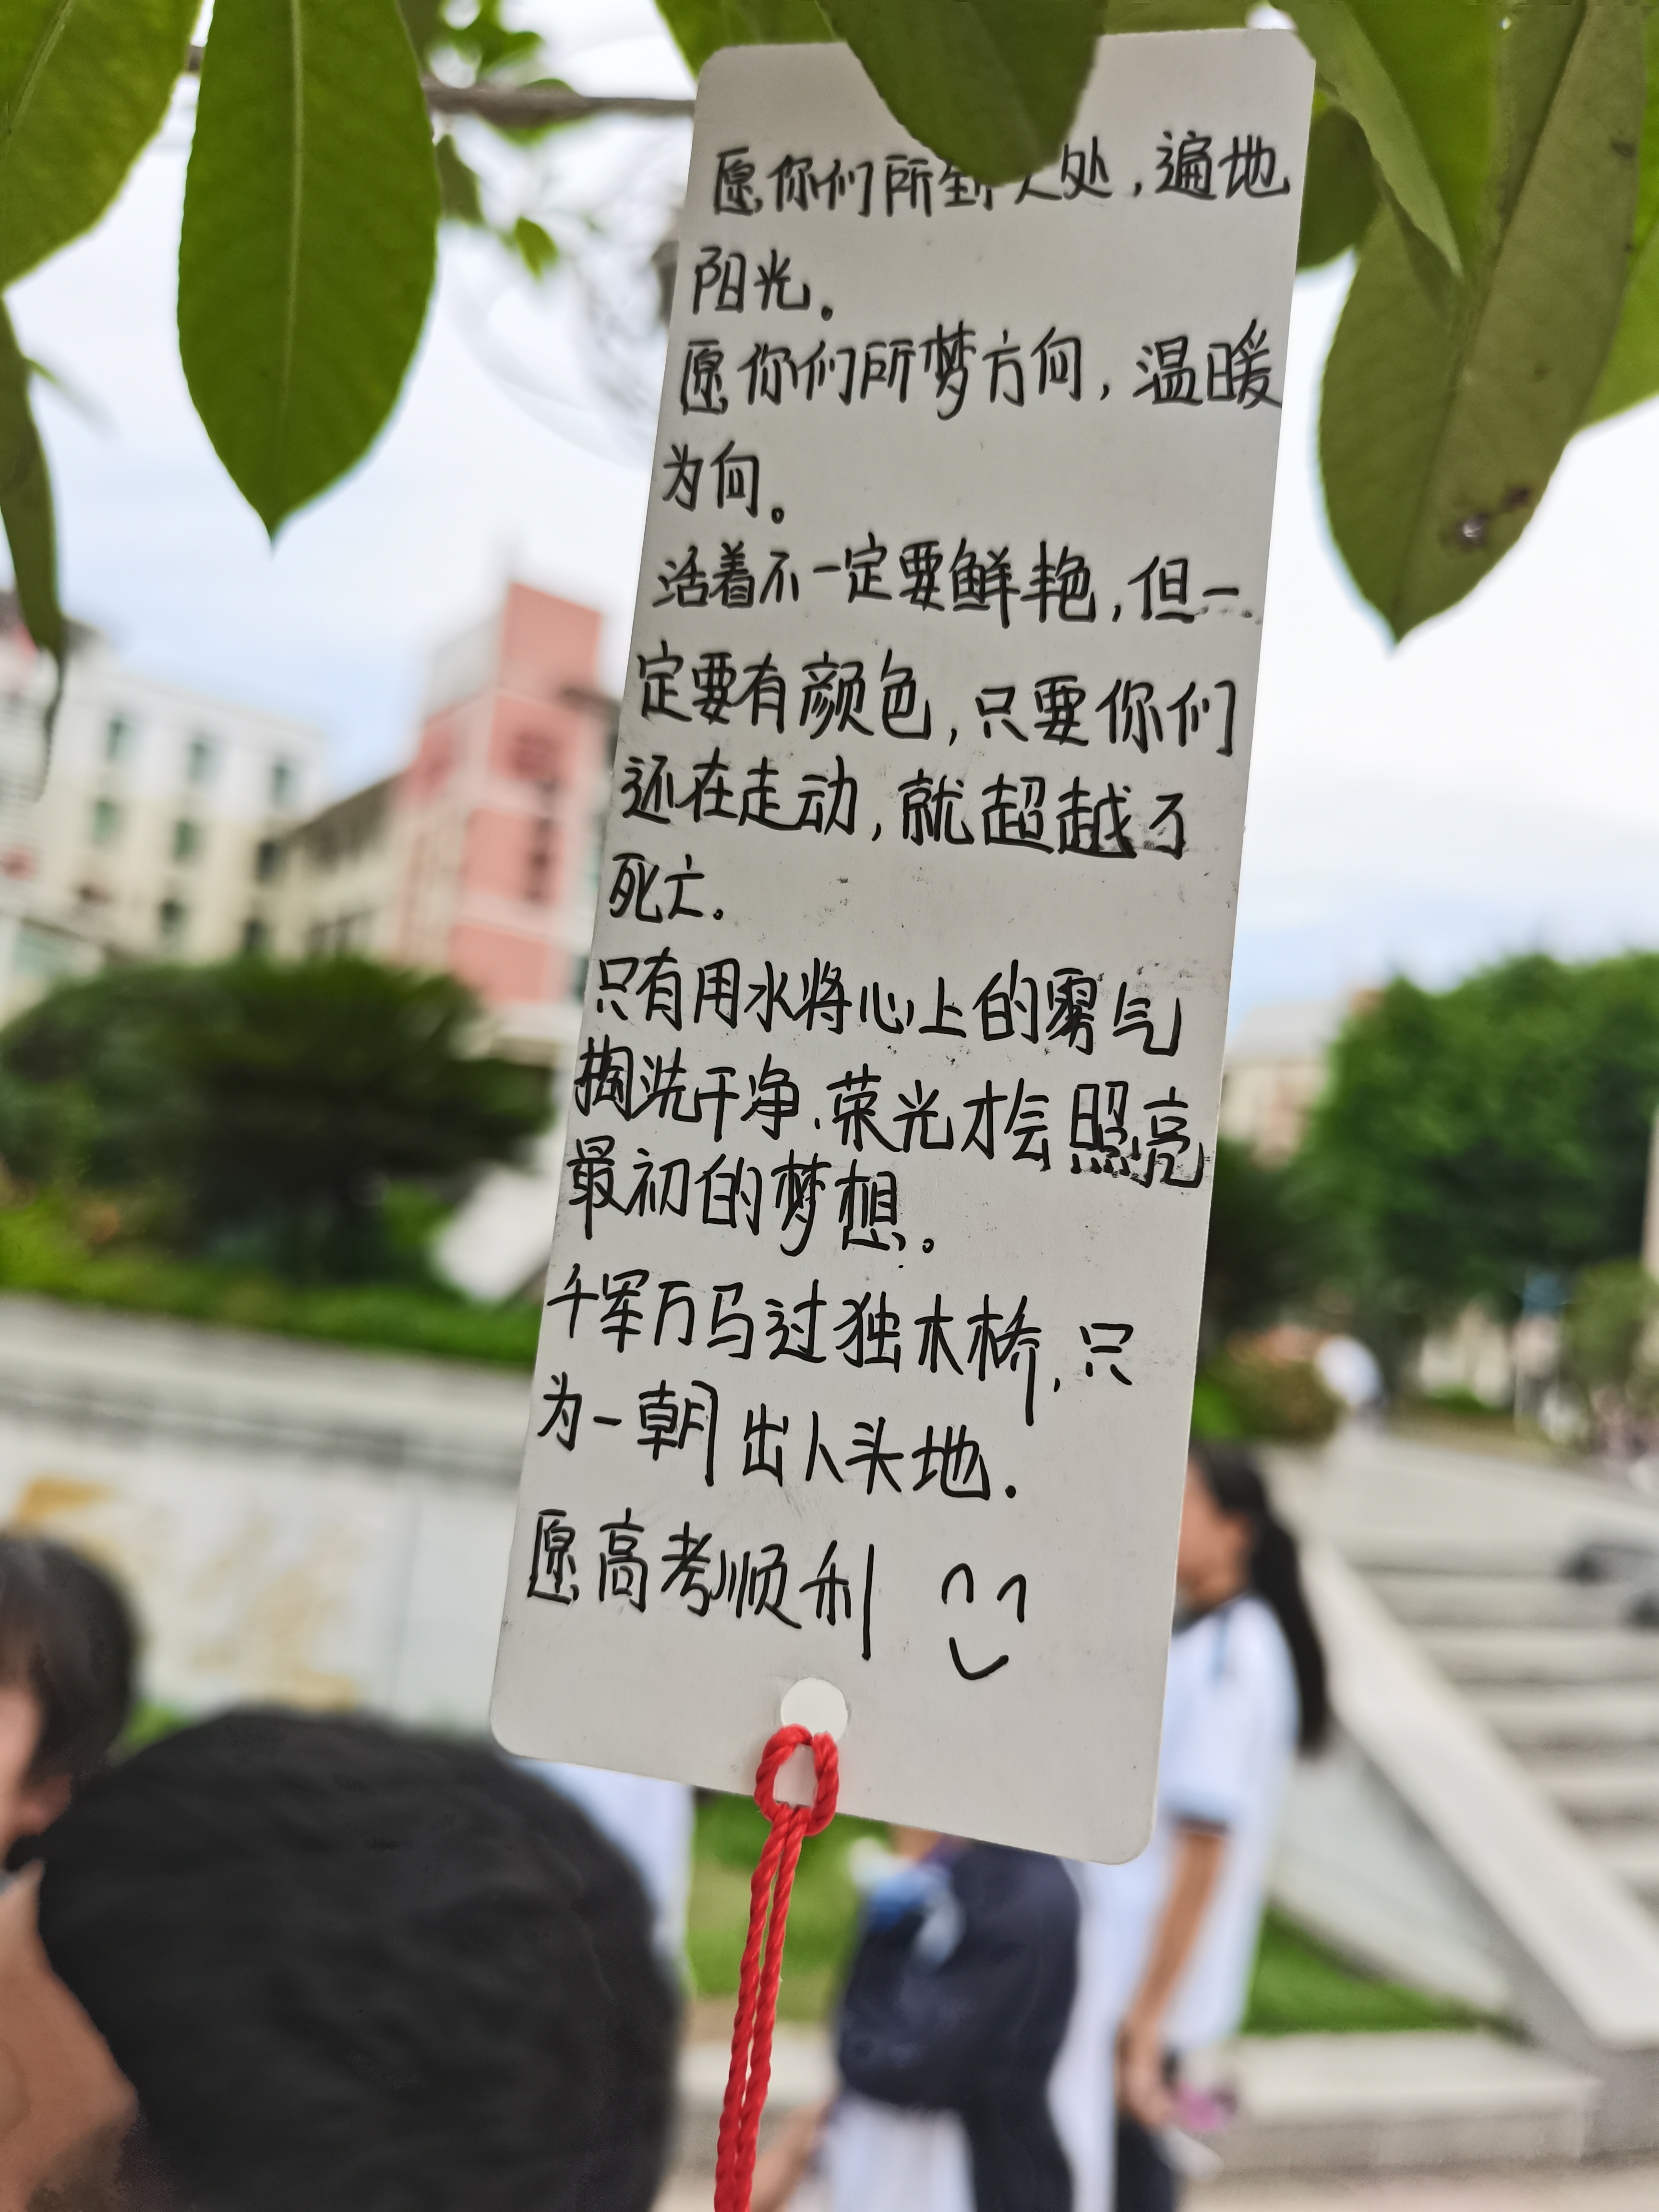 愿你们所到之处，遍地
阳光。
愿你们所梦方向，温暖
为向。
活着不一定要鲜艳，但一
定要有颜色，只要你们
还在走动，就超越了
死亡。
只有用水将心上的雾气
掏洗干净，荣光才会照亮
最初的梦想。
千军万马过独木桥，只
为一朝出人头地.
愿高考顺利